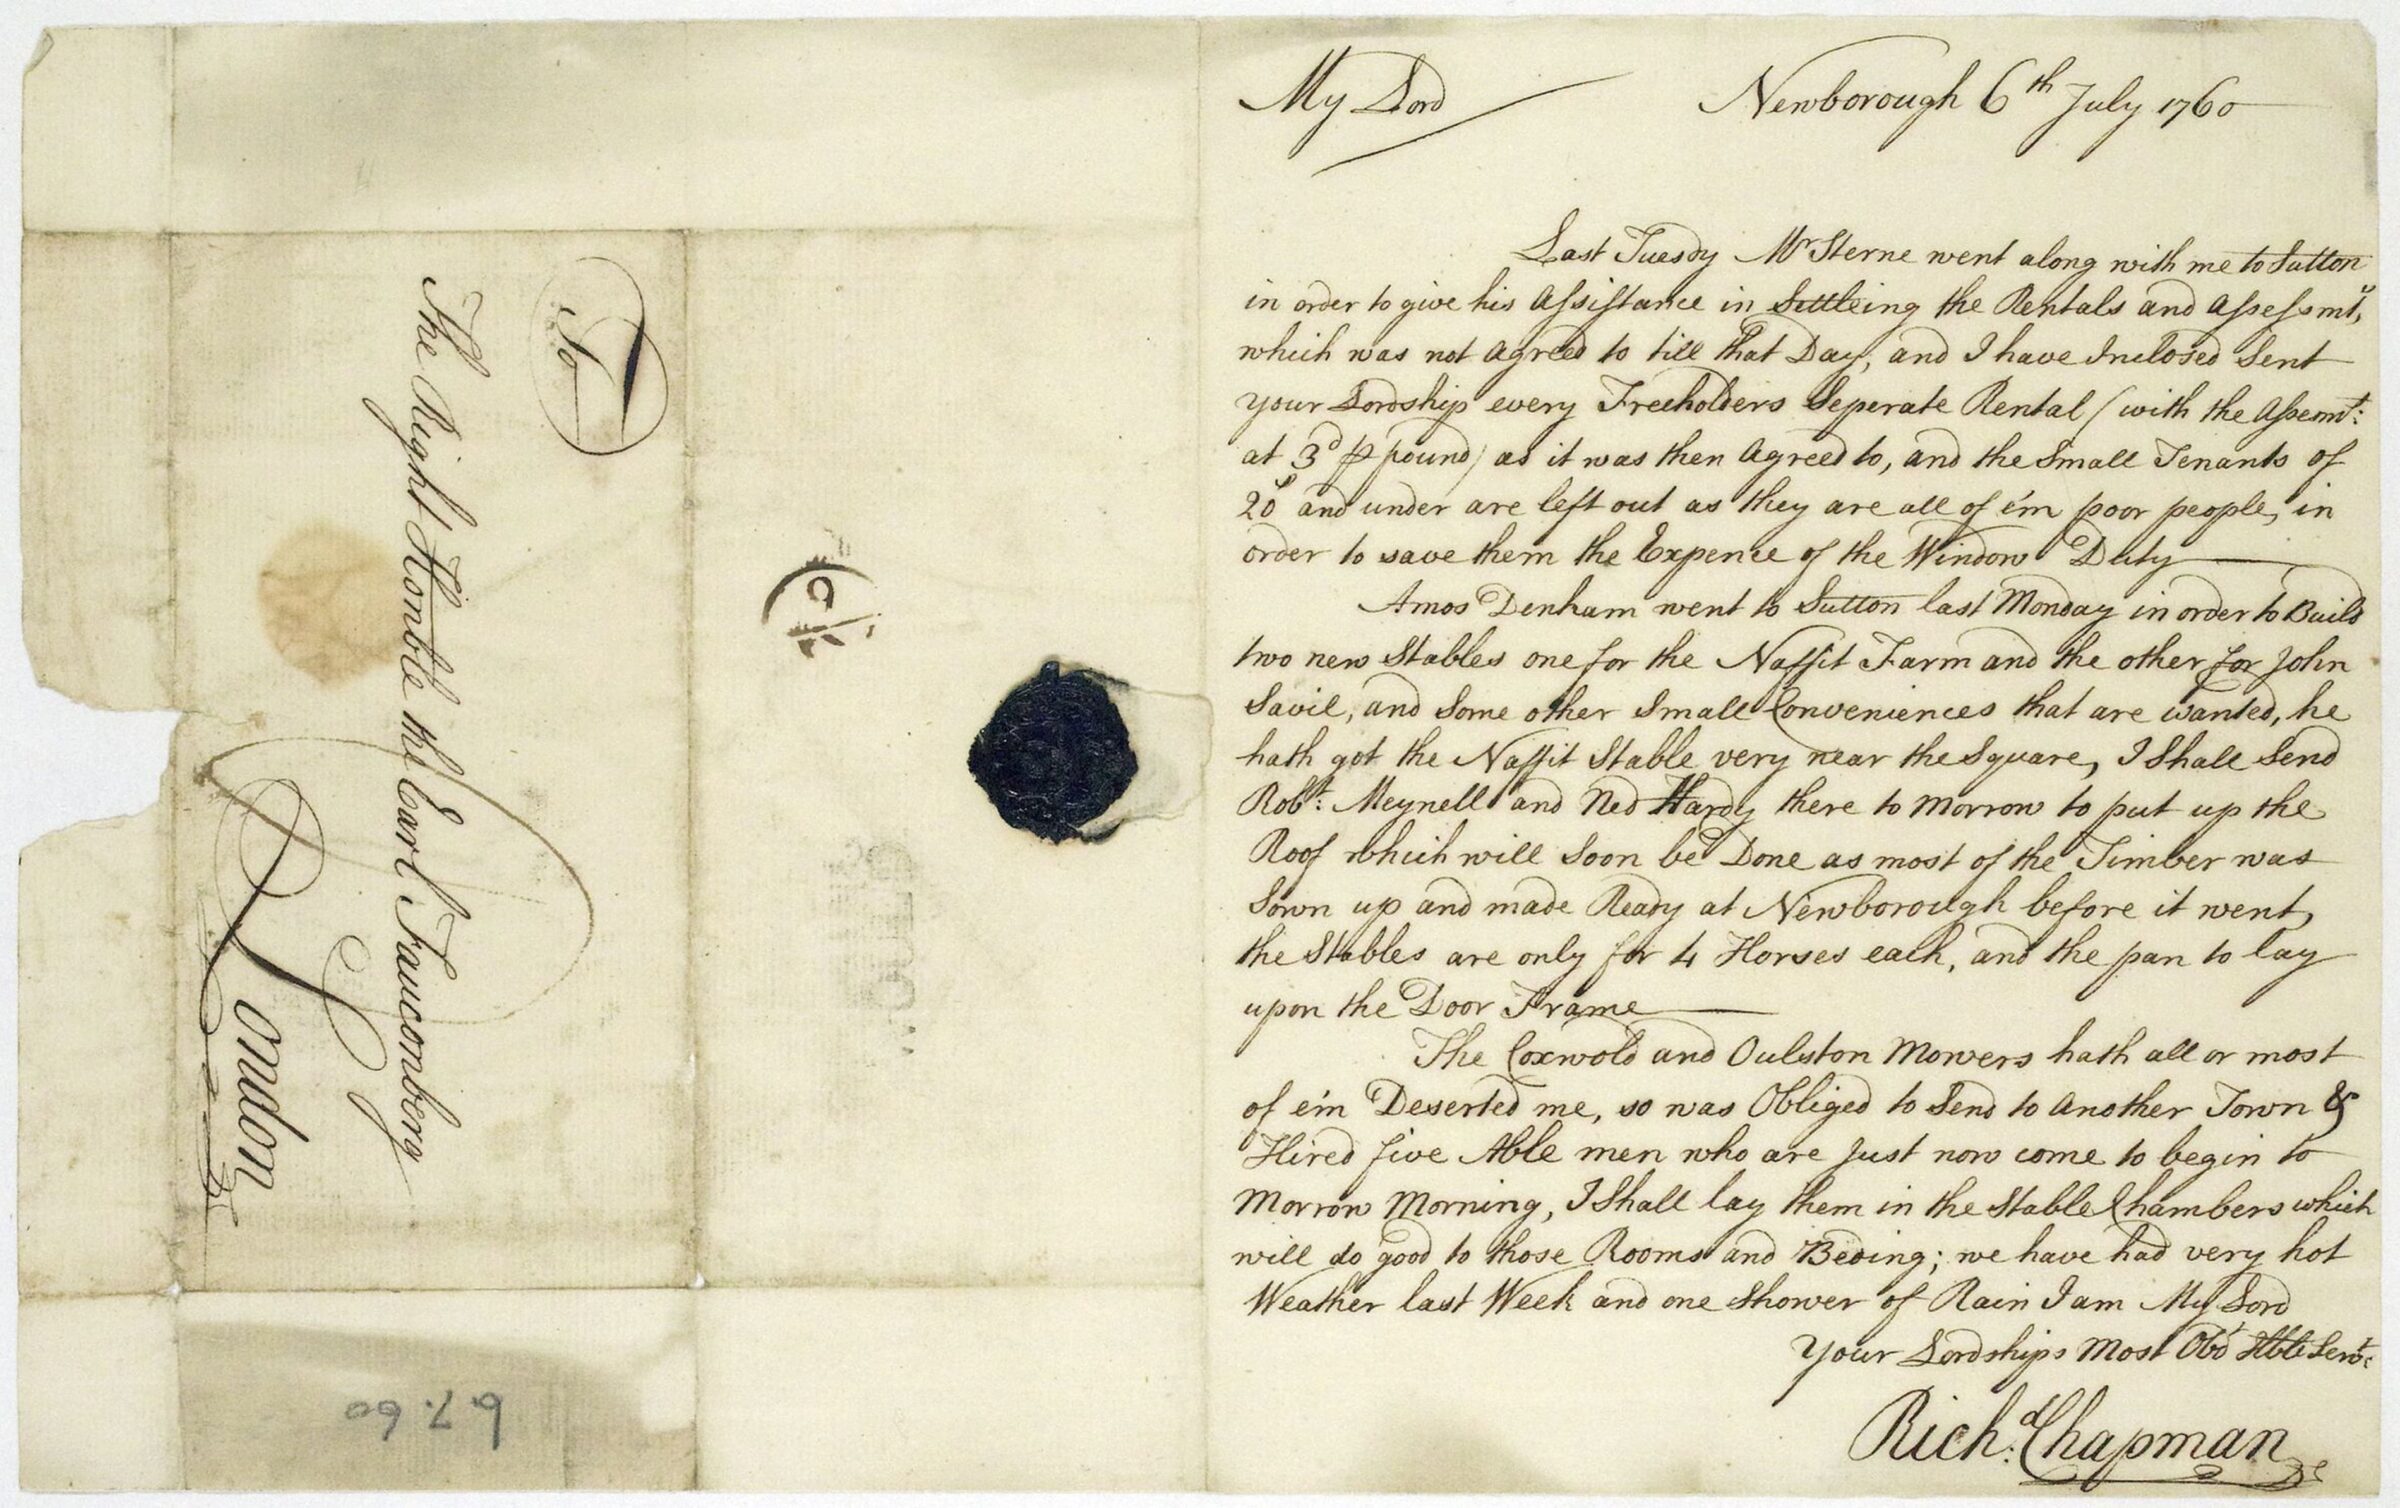 To
The Right Honble the Earl Fauconberg
London
6.7.60
My Lord
Newborough 6th July 1760
Last Tuesdy Mr Sterne went along with me to Sutton
in order to give his Assistance in Settleing the Rentals and Assessmts,
which was not Agreed to till that Day, and I have Inclosed Sent
your Lordship every Freeholders Seperate Rental (with the Assemt:
at 3d ⅌ pound) as it was then Agreed to, and the Small Tenants of
20s and under are left out as they are all of e'm poor people, in
order to save them the Expence of the Window Duty
Amos Denham went to Sutton last Monday in order to Build
two new Stables one for the Nassit Farm and the other for John
Savil, and Some other Small Conveniences that are wanted, he
hath got the Nassit Stable very near the Square, I Shall Send
Robt: Meynell and Ned Hardy there to Morrow to put up the
Roof which will Soon be Done as most of the Timber was
Sown up and made Ready at Newborough before it went,
the Stables are only for 4 Horses each, and the pan to lay
upon the Door Frame
The Coxwold and Oulston Mowers hath all or most
of e'm Deserted me, so was Obliged to Send to Another Town &
Hired five Able men who are Just now come to begin to
Morrow Morning, I Shall lay them in the Stable Chambers which
will do good to those Rooms and Beding; we have had very hot
Weather last Week and one Shower of Rain I am My Lord
Your Lordships Most Obdt Hble Servt:
Richd: Chapman